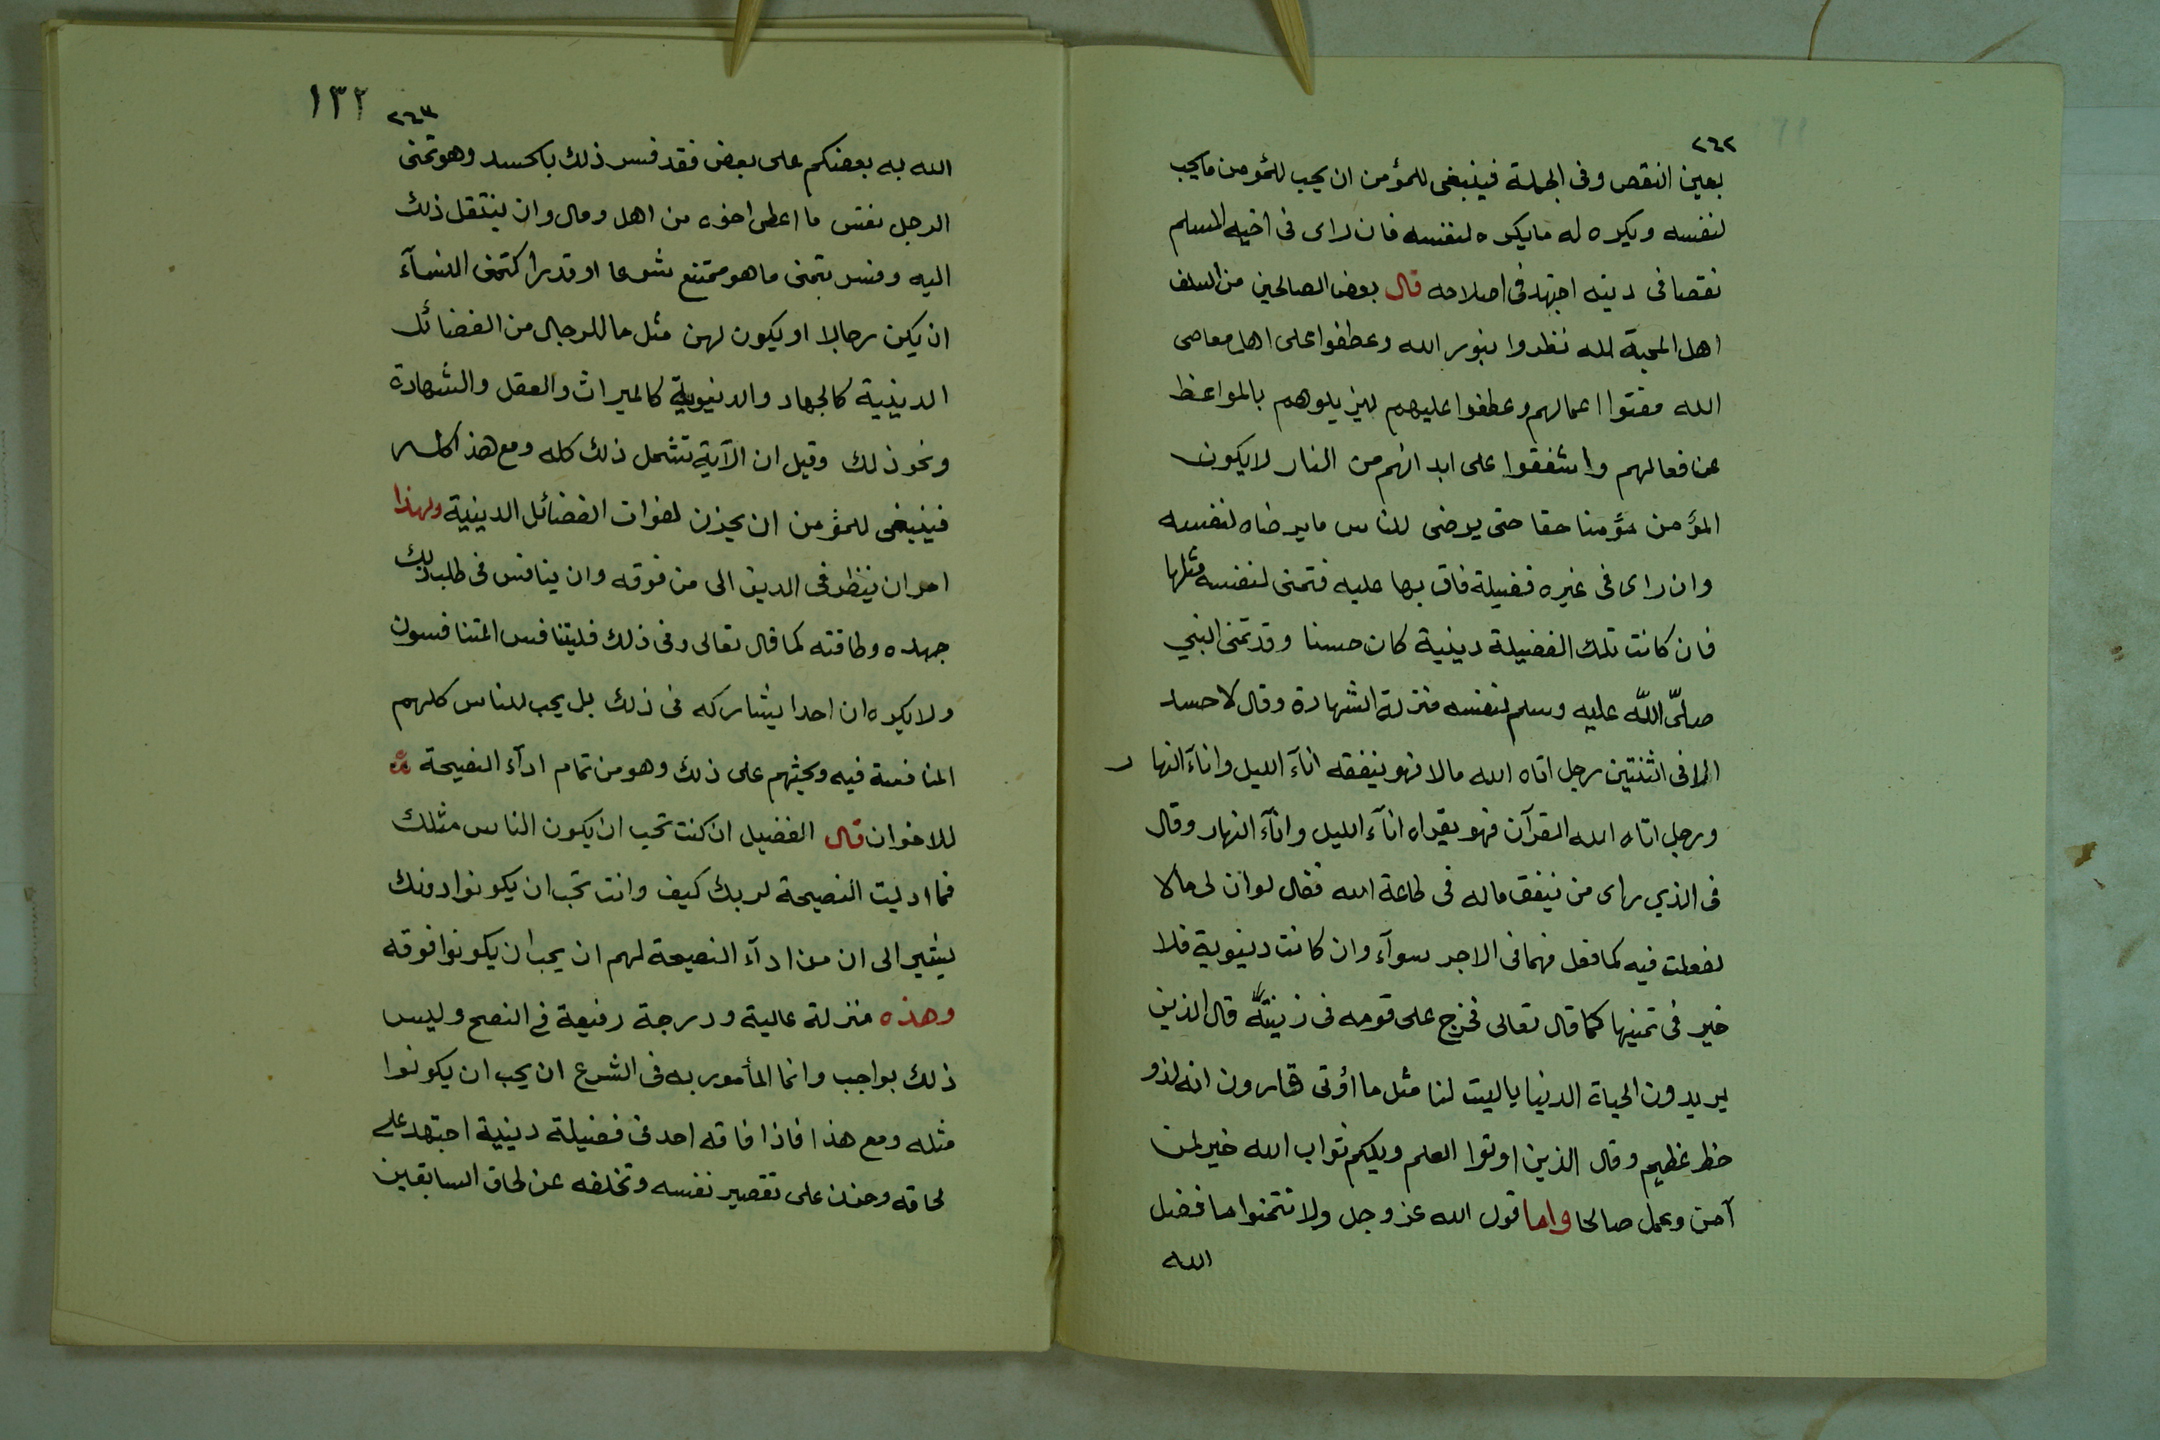 ٢٦٢
بعين النقص وفى الجملة فينبغى للمؤمن ان يحب للمؤمن ما يحب
لنفسه ويكره له ما يكره لنفسه فان راى فى اخيه المسلم
نقصا فى دينه اجتهد فى اصلاحه قال بعض الصالحين من السلف
اهل المحبة لله نظروا بنور الله وعطفوا على اهل معاصى
الله مقتوا اعمالهم وعطفوا عليهم ليزيلوهم بالمواعظ
عن افعالهم واشفقوا على ابدانهم من النار لا يكون
المؤمن مؤمنا حقا حتى يرضى للناس ما يرضاه لنفسه
وان راى فى غيره فضيلة فاق بها عليه فتمنى لنفسه مثلها
فان كانت تلك الفضيلة دينية كان حسنا وقد تمنى النبي
صلّى اللّه عليه وسلم لنفسه منزلة الشهادة وقال لا حسد
الا فى اثنتين رجل اتاه الله مالا فهو ينفقه اناء الليل واناء النهار
ورجل اتاه الله القرآن فهو يقراه اناء الليل واناء النهار وقال
فى الذي راى من ينفق ماله فى طاعة الله فقال لو ان لى مالا
لفعلت فيه كما فعل فهما فى الاجر سوآء وان كانت دنيوية فلا
خير فى تمنيها كما قال تعالى فخرج على قومه فى زينته قال الذين
يريدون الحياة الدنيا يا ليت لنا مثل ما اؤتى قارون انه لذو
حظ عظيم وقال الذين اوتوا العلم ويلكم ثواب الله خير لمن
آمن وعمل صالحا واما قول الله عز وجل ولا تتمنوا ما فضل
الله
١٣٢
٢٦٣
الله به بعضكم على بعض فقد فسر ذلك بالحسد وهو تمنى
الرجل نفس ما اعطى اخوه من اهل ومال وان ينتقل ذلك
اليه وفسر بتمنى ما هو ممتنع شرعا او قدرا كتمنى النسآء
ان يكن رجالا او يكون لهن مثل ما للرجال من الفضائل
الدينية كالجهاد والدنيوية كالميراث والعقل والشهادة
ونحو ذلك وقيل ان الآية تشمل ذلك كله ومع هذا كله
فينبغى للمؤمن ان يحزن لفوات الفضائل الدينية ولهذا
امر ان ينظر فى الدين الى من فوقه وان ينافس فى طلب ذلك
جهده وطاقته كما قال تعالى وفى ذلك فليتنافس المتنافسون
ولا يكره ان احدا يشاركه فى ذلك بل يحب للناس كلهم
المنافسة فيه ويحثهم على ذلك وهو من تمام ادآء النصيحة
للاخوان قال الفضيل ان كنت تحب ان يكون الناس مثلك
فما اديت النصيحة لربك كيف وانت تحب ان يكونوا دونك
يشير الى ان من ادآء النصيحة لهم ان يحب ان يكونوا فوقه
وهذه منزلة عالية ودرجة رفيعة فى النصح وليس
ذلك بواجب وانما المأمور به فى الشرع ان يحب ان يكونوا
مثله ومع هذا فاذا فاقه احد فى فضيلة دينية اجتهد على
لحاقه وحزن على تقصير نفسه وتخلفه عن لحاق السابقين